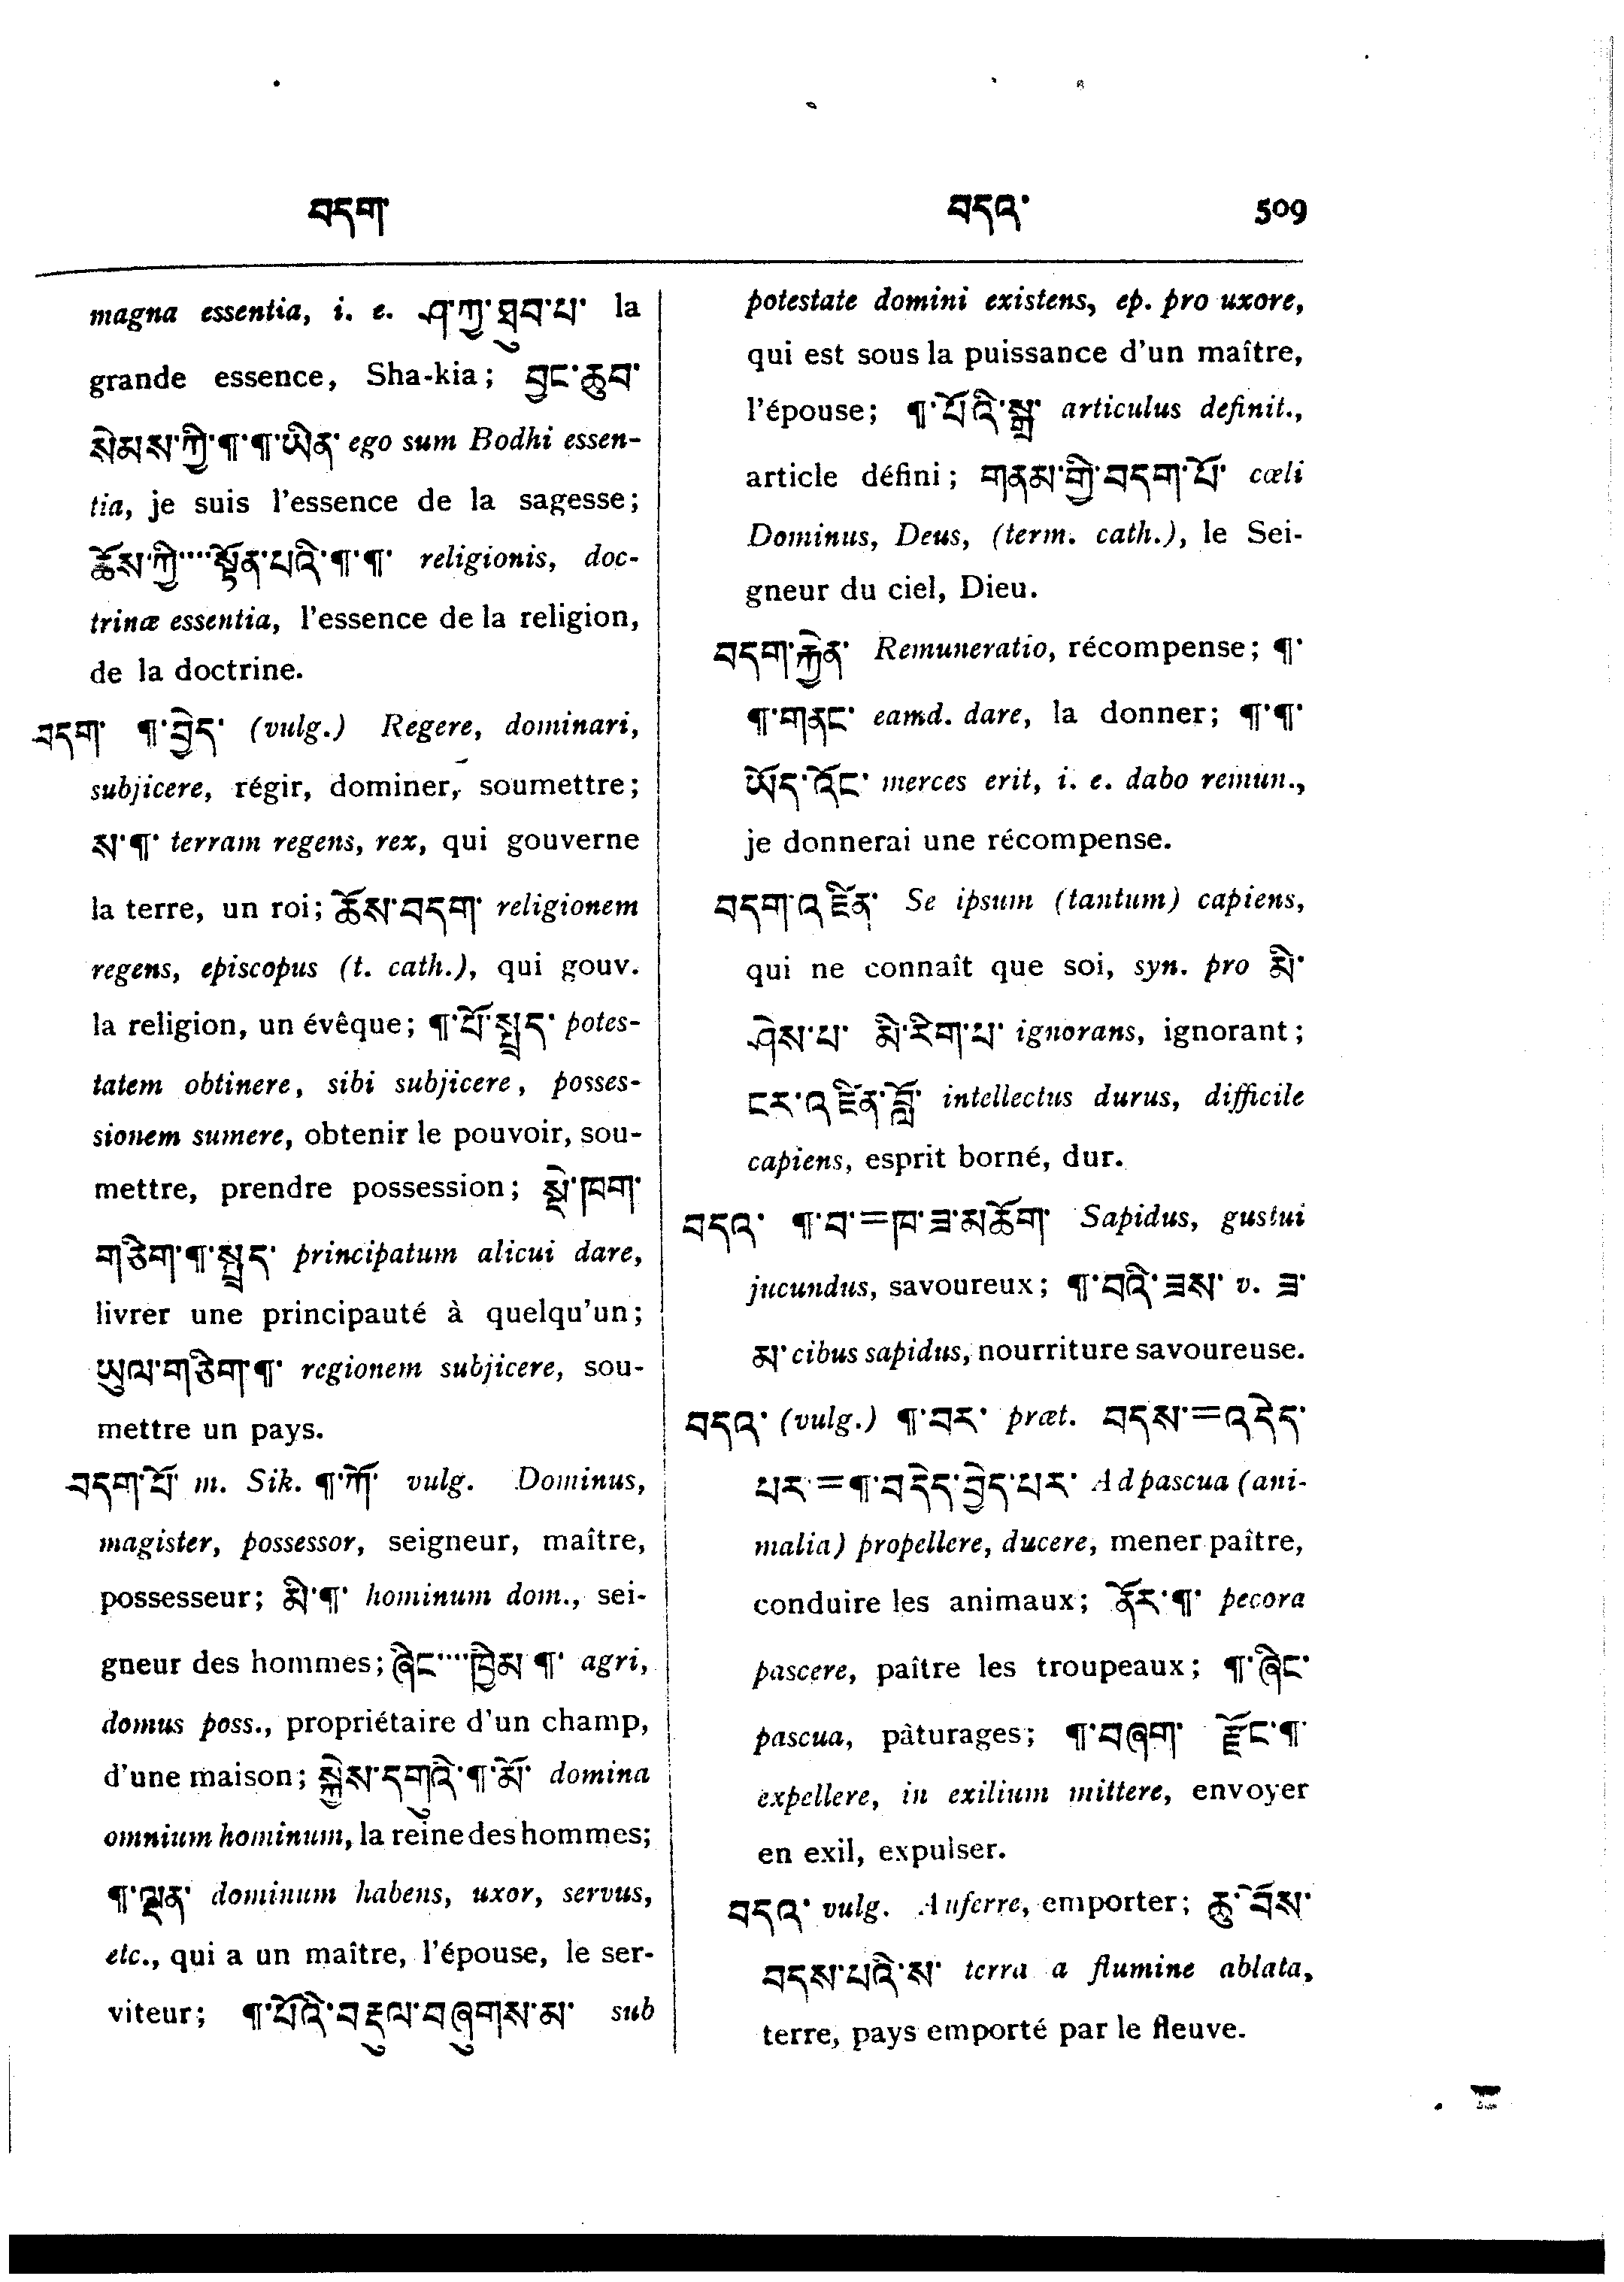 བདག་ བདའ་ 509
magna essentia, i. e. ཤ་ཀྱ་ཐུབ་པ་ la
grande essence, Sha-kia; བྱང་ཆུབ་
སེམས་ཀྱི་¶་¶་ཡིན་ ego sum Bodhi essen-
tia, je suis l'essence de la sagesse;
ཆོས་ཀྱི་····སྟོན་པའི་¶་¶་ religionis, doc-
trinæ essentia, l'essence de la religion,
de la doctrine.
བདག་ ¶་བྱེད་ (vulg.) Regere, dominari,
subjicere, régir, dominer, soumettre;
ས་¶་ terram regens, rex, qui gouverne
la terre, un roi; ཆོས་བདག་ religionem
regens, episcopus (t. cath.), qui gouv.
la religion, un évêque; ¶་པོ་སྤྲད་ potes-
tatem obtinere, sibi subjicere, posses-
sionem sumere, obtenir le pouvoir, sou-
mettre, prendre possession; སྡེ་ཁག་
གཅིག་¶་སྤྲད་ principatum alicui dare,
livrer une principauté à quelqu'un;
ཡུལ་གཅིག་¶་ regionem subjicere, sou-
mettre un pays.
བདག་པོ་ m. Sik. ¶་ཀོ་ vulg. Dominus,
magister, possessor, seigneur, maître,
possesseur; མི་¶་ hominum dom., sei-
gneur des hommes; ཞིང་····ཁྱིམ ¶་ agri,
domus poss., propriétaire d'un champ,
d'une maison; སྐྱེས་དགུའི་¶་མོ་ domina
omnium hominum, la reine des hommes;
¶་ལྡན་ dominum habens, uxor, servus,
etc., qui a un maître, l'épouse, le ser-
viteur; ¶་པོའི་བརྡུལ་བཞུགས་མ་ sub
potestate domini existens, ep. pro uxore,
qui est sous la puissance d'un maître,
l'épouse; ¶་པོའི་སྒྲ་ articulus definit.,
article défini; གནམ་གྱི་བདག་པོ་ cœli
Dominus, Deus, (term. cath.), le Sei-
gneur du ciel, Dieu.
བདག་རྐྱེན་ Remuneratio, récompense; ¶་
¶་གནང་ eamd. dare, la donner; ¶་¶་
ཡོད་འོང་ merces erit, i. e. dabo remun.,
je donnerai une récompense.
བདག་འཛིན་ Se ipsum (tantum) capiens,
qui ne connaît que soi, syn. pro མི་
ཤེས་པ་ མི་རིག་པ་ ignorans, ignorant;
ངར་འཛིན་བློ་ intellectus durus, difficile
capiens, esprit borné, dur.
བདའ་ ¶་བ་=ཁ་ཟ་མཆོག་ Sapidus, gustui
jucundus, savoureux; ¶་བའི་ཟས་ v. ཟ་
མ་ cibus sapidus, nourriture savoureuse.
བདའ་ (vulg.) ¶་བར་ præt. བདས་=འདེད་
པར་=¶་བ་དེད་བྱེད་པར་ Ad pascua (ani-
malia) propellere, ducere, mener paître,
conduire les animaux; ནོར་¶་ pecora
pascere, paître les troupeaux; ¶་ཞིང་
pascua, pâturages; ¶་བཞག་ རྫོང་¶་
expellere, in exilium mittere, envoyer
en exil, expulser.
བདའ་ vulg. Auferre, emporter; ཆུ་བོས་
བདས་པའི་ས་ terra a flumine ablata,
terre, pays emporté par le fleuve.